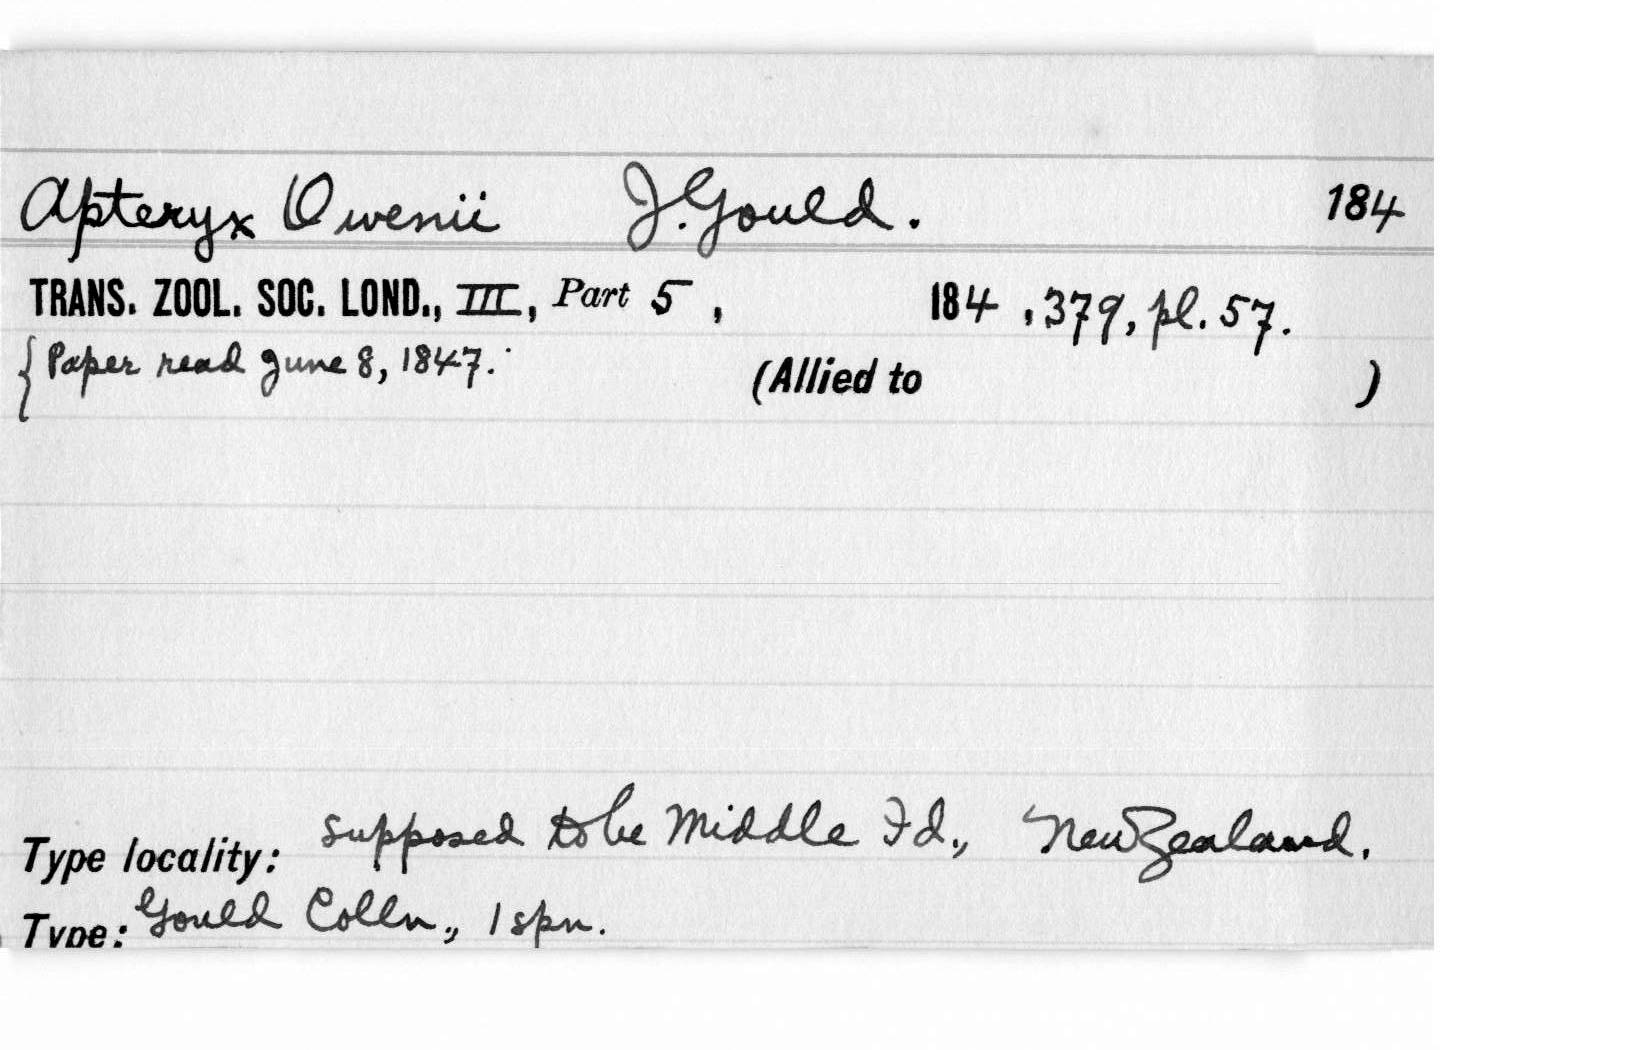 Apteryx Owenii J. Gould. 184
TRANS. ZOOL. SOC. LOND., III, Part 5, 184 , 379, pl. 57.
{ Paper read June 8, 1847.
(Allied to )
Type locality: supposed to be Middle Id., New Zealand.
Type: Gould Colln., 1 spn.